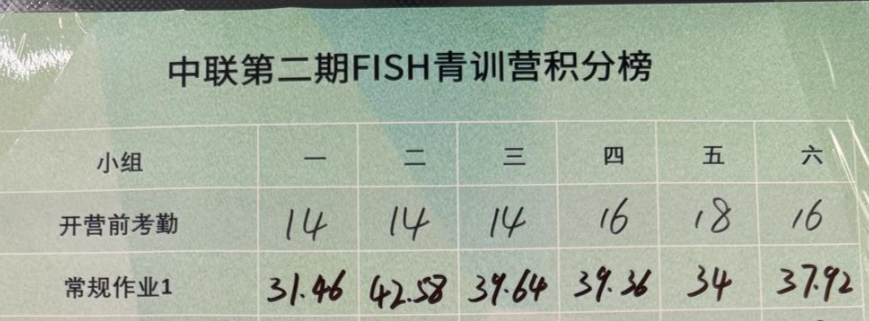 中联第二期FISH青训营积分榜
小组 一 二 三 四 五 六
开营前考勤 14 14 14 16 18 16
常规作业1 31.46 42.58 39.64 39.36 34 37.92